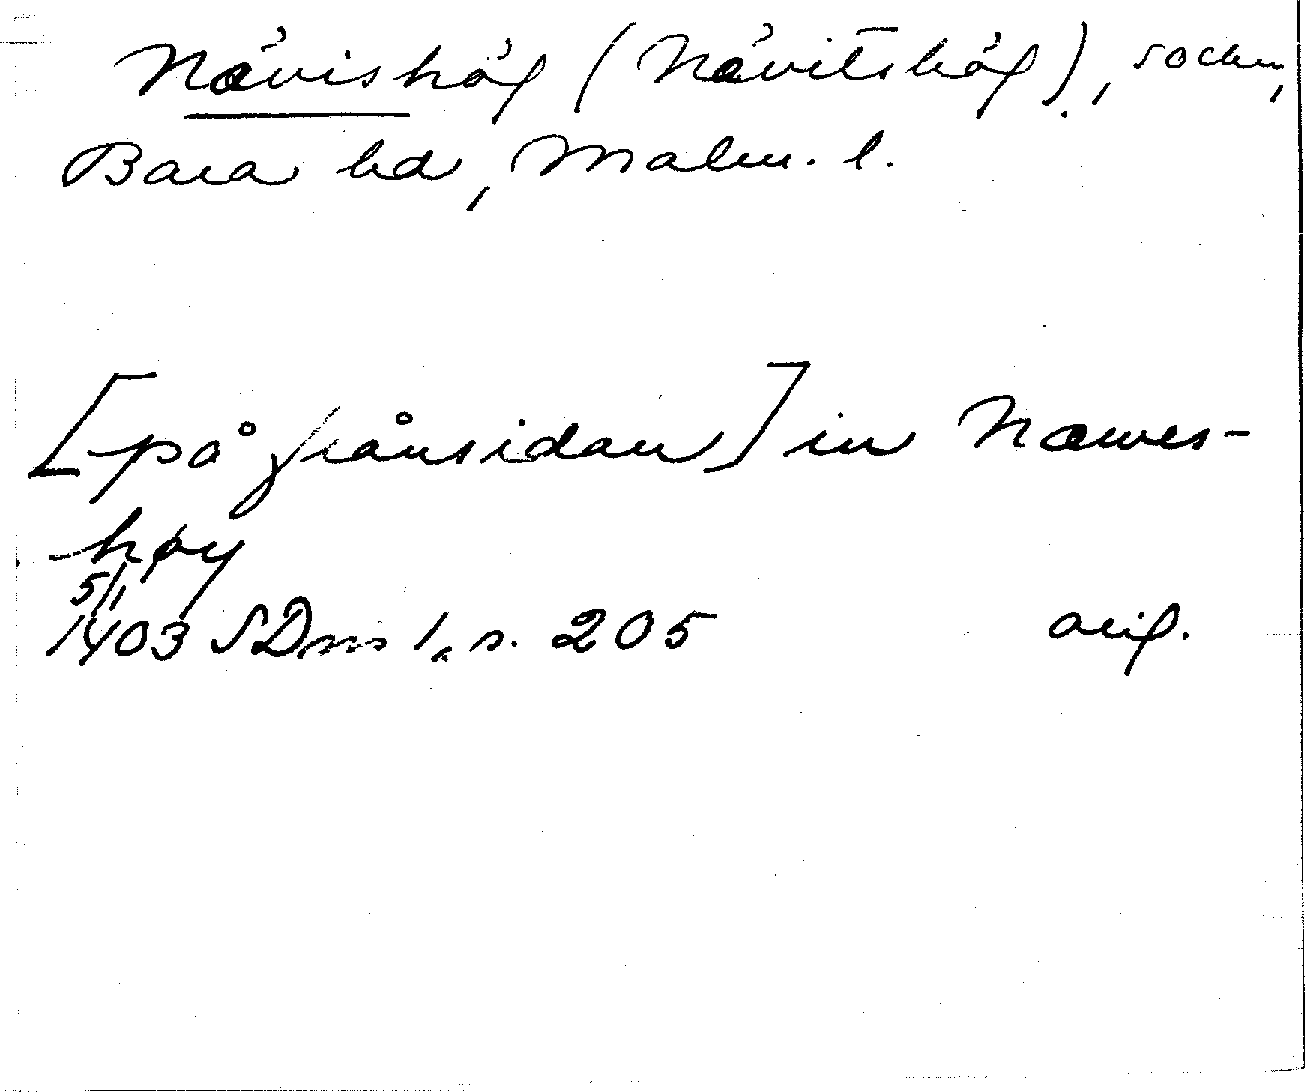 Nävishög (Nävitshög), socken,
Bara hd, Malm. l.
[på frånsidan] in Næwes-
høy
5/1
1403 SDns 1, s. 205 orig.